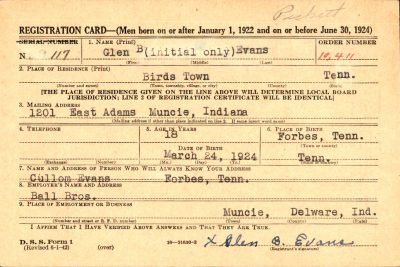 Pickett
REGISTRATION CARD—(Men born on or after January 1, 1922 and on or before June 30, 1924)
SERIAL NUMBER 1. NAME (Print) ORDER NUMBER
N 117 Glen B(initial only)Evans 12,411
(First) (Middle) (Last)
2. PLACE OF RESIDENCE (Print)
Birds Town Tenn.
(Number and street) (Town, township, village, or city) (County) (State)
[THE PLACE OF RESIDENCE GIVEN ON THE LINE ABOVE WILL DETERMINE LOCAL BOARD
JURISDICTION; LINE 2 OF REGISTRATION CERTIFICATE WILL BE IDENTICAL]
3. MAILING ADDRESS
1201 East Adams Muncie, Indiana
[Mailing address if other than place indicated on line 2. If same insert word same]
4. TELEPHONE 5. AGE IN YEARS 6. PLACE OF BIRTH
18 Forbes, Tenn.
DATE OF BIRTH (Town or county)
March 24, 1924 Tenn.
(Exchange) (Number) (Mo.) (Day) (Yr.) (State or country)
7. NAME AND ADDRESS OF PERSON WHO WILL ALWAYS KNOW YOUR ADDRESS
Cullom Evans Forbes, Tenn.
8. EMPLOYER'S NAME AND ADDRESS
Ball Bros.
9. PLACE OF EMPLOYMENT OR BUSINESS
Muncie, Delware, Ind.
(Number and street or R. F. D. number) (Town) (County) (State)
I AFFIRM THAT I HAVE VERIFIED ABOVE ANSWERS AND THAT THEY ARE TRUE.
D. S. S. Form 1
(Revised 6-1-42) (over) 16—21630-2 x Glen B. Evans
(Registrant's signature)